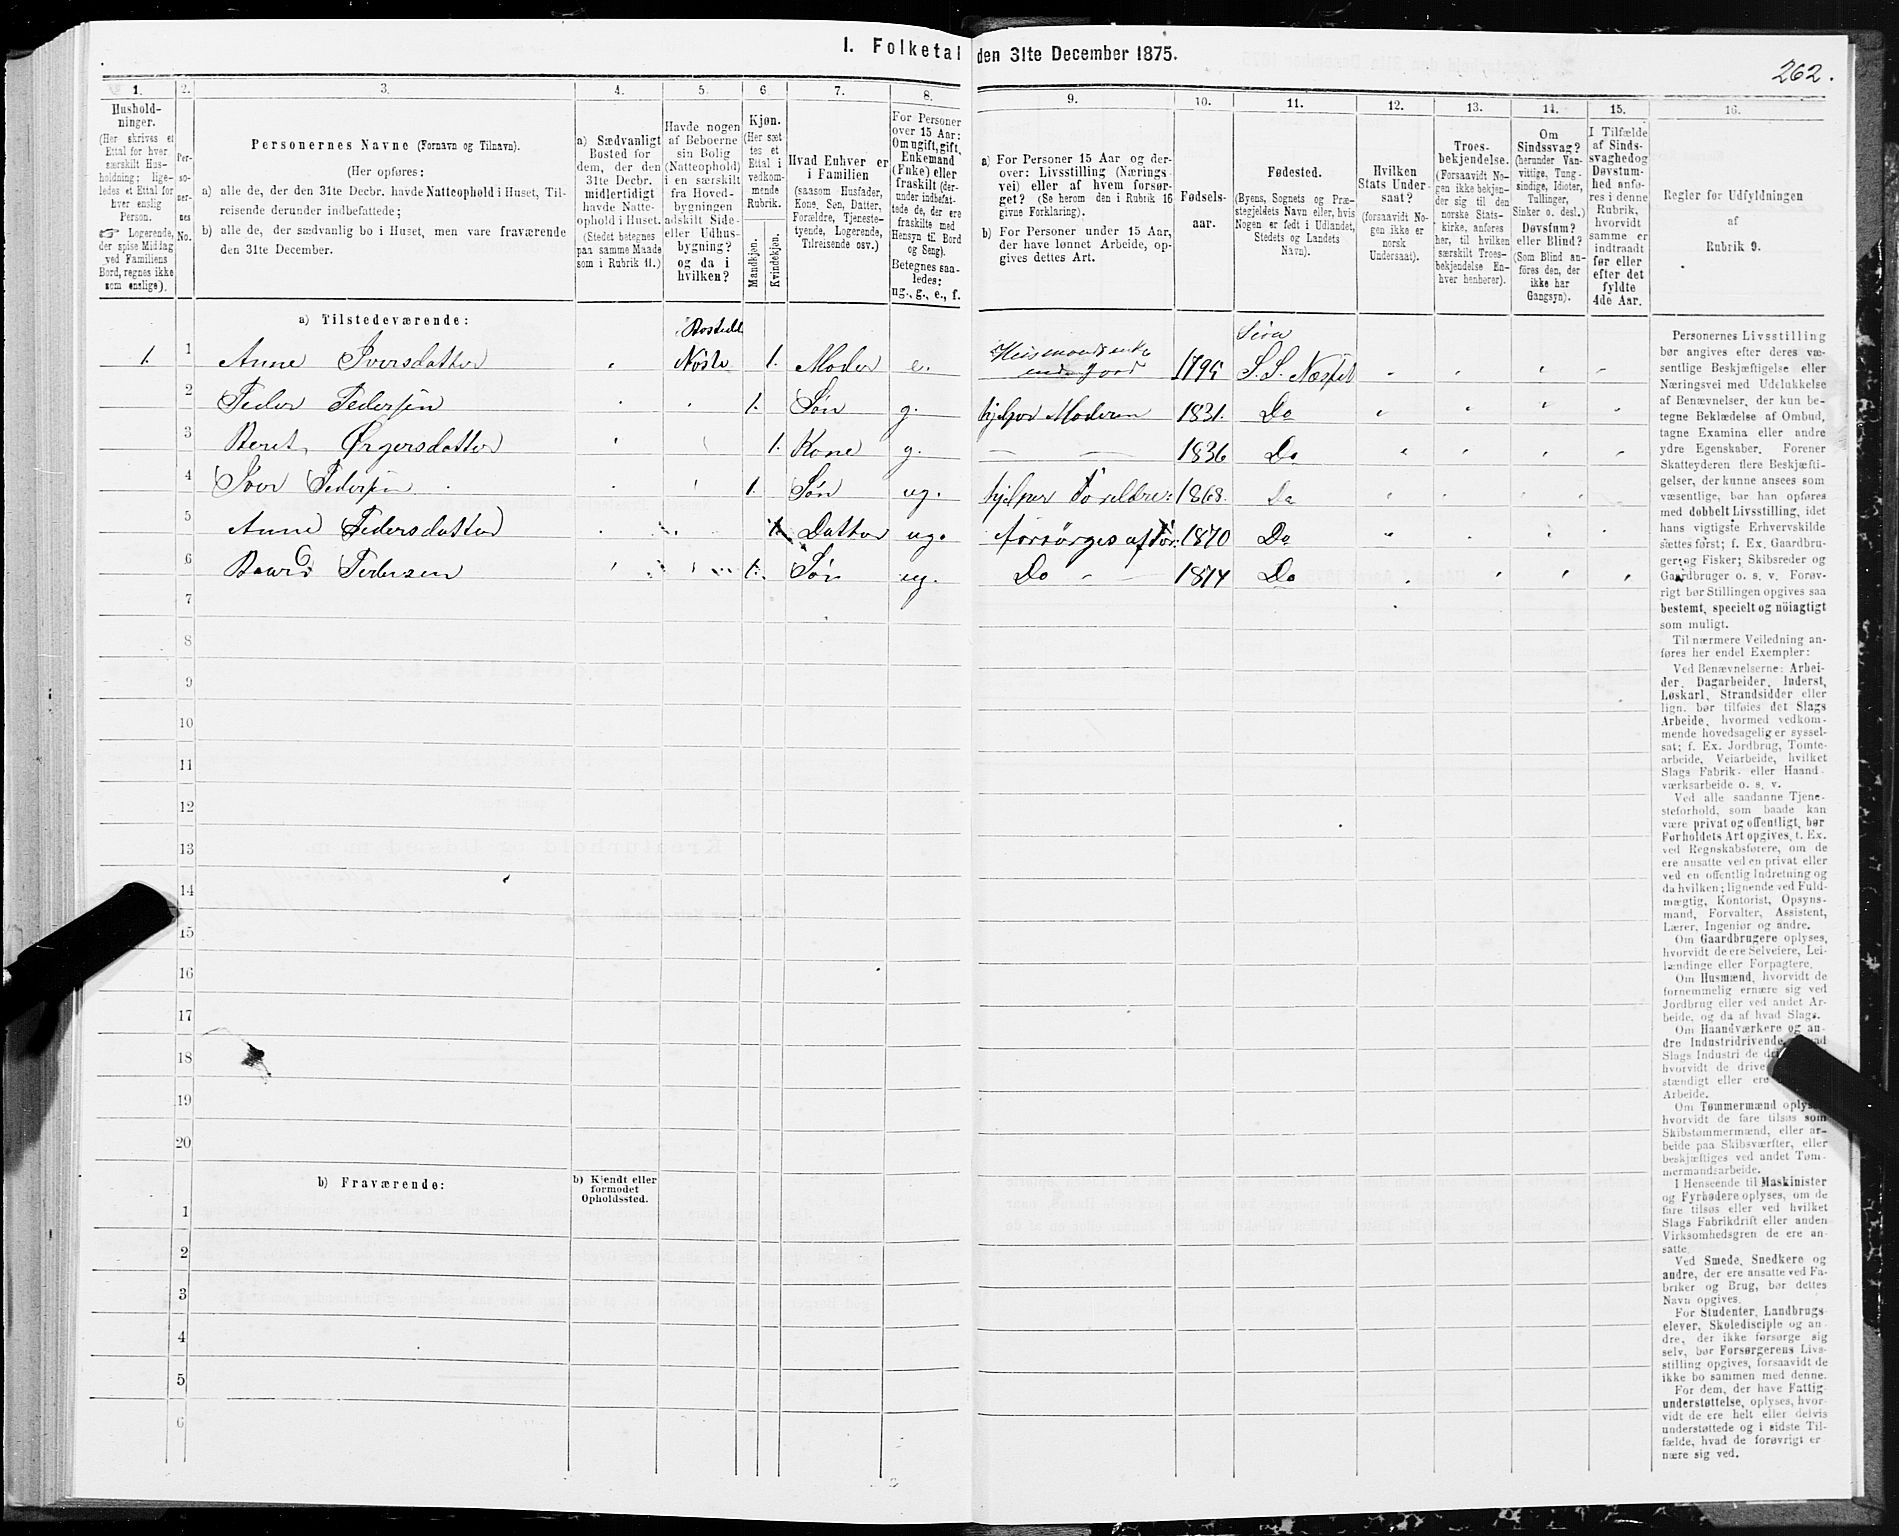 1. Folketal den 31te December 1875.
262.
1.
2.
3.
4.
5.
6.
7.
8.
9.
10.
11.
12.
13.
14.
15.
16.
Hushold-
ninger.
(Her skrives et
Ettal for hver
særskilt Hus-
holdning; lige-
ledes et Ettal for
hver enslig
Person.
☞ Logerende,
der spise Middag
ved Familiens
Bord, regnes ikke
som enslige).
Per-
so-
ner-
nes
No.
Personernes Navne (Fornavn og Tilnavn).
(Her opføres:
a) alle de, der den 31te Decbr. havde Natteophold i Huset, Til-
reisende derunder indbefattede;
b) alle de, der sædvanlig bo i Huset, men vare fraværende
den 31te December.
a) Sædvanligt
Bosted for
dem, der den
31te Decbr.
midlertidigt
havde Natte-
ophold i Huset.
(Stedet betegnes
paa samme Maade
som i Rubrik 11.)
Havde nogen
af Beboerne
sin Bolig
(Natteophold)
i en særskilt
fra Hoved-
bygningen
adskilt Side-
eller Udhus-
bygning?
og da i
hvilken?
Kjøn.
(Her sæt
tes et
Ettal i
vedkom-
mende
Rubrik.
Mandkjøn.
Kvindekjøn.
Hvad Enhver er
i Familien
(saasom Husfader,
Kone, Søn, Datter,
Forældre, Tjeneste-
tyende, Logerende,
Tilreisende osv.)
For Personer
over 15 Aar:
Om ugift, gift,
Enkemand
(Enke) eller
fraskilt (der-
under indbefat-
tede de, der ere
fraskilte med
Hensyn til Bord
og Seng).
Betegnes saa-
ledes:
ug., g., e., f.
a) For Personer 15 Aar og der-
over: Livsstilling (Nærings
vei) eller af hvem forsør-
get? (Se herom den i Rubrik 16
givne Forklaring).
b) For Personer under 15 Aar,
der have lønnet Arbeide, op-
gives dettes Art.
Fødsels-
aar.
Fødested.
(Byens, Sognets og Præ-
stegjeldets Navn eller, hvis
Nogen er født i Udlandet,
Stedets og Landets
Navn).
Hvilken
Stats Under-
saat?
(forsaavidt No-
gen ikke er
norsk
Undersaat).
Troes-
bekjendelse.
(Forsaavidt No-
gen ikke bekjen-
der sig til den
norske Stats-
kirke, anføres
her, til hvilken
særskilt Troes-
bekjendelse En-
hver henhører).
Om
Sindssvag?
(herunder Van-
vittige, Tung-
sindige, Idioter,
Tullinger,
Sinker o. desl.)
Døvstum?
eller Blind?
(Som Blind an-
føres den, der
ikke har
Gangsyn).
I Tilfælde
af Sinds-
svaghed og
Døvstum-
hed anfø-
res i denne
Rubrik,
hvorvidt
samme er
indtraadt
før eller
efter det
fyldte
4de Aar.
Regler for Udfyldningen
af
Rubrik 9.
a) Tilstedeværende:
1. 1 Anne Iversdatter 1. Moder e. 1795
2 Peder Pedersen 1. Søn g. hjelper Moderen 1831. Do
3 Beret 1. Kone g. — — 1836 Do
4 Iver Pedersen 1. Søn ug. hjelper Forældre: 1868. Do
5 Anne Pedersdatter 1. Datter ug. forsørges af For: 1870 Do
6 Pedersen 1. Søn ug. Do — 1874 Do
7
8
9
10
11
12
13
14
15
16
17
18
19
20
b) Fraværende:
b) Kjendt eller
formodet
Opholdssted.
1
2
3
4
5
6
Personernes Livsstilling
bør angives efter deres væ-
sentlige Beskjæftigelse eller
Næringsvei med Udelukkelse
af Benævnelser, der kun be-
tegne Beklædelse af Ombud,
tagne Examina eller andre
ydre Egenskaber. Forener
Skatteyderen flere Beskjæfti-
gelser, der kunne ansees som
væsentlige, bør han opføres
med dobbelt Livsstilling, idet
hans vigtigste Erhvervskilde
sættes først; f. Ex. Gaardbru-
ger og Fisker; Skibsreder og
Gaardbruger o. s. v. Forøv-
rigt bør Stillingen opgives saa
bestemt, specielt og nöiagtigt
som muligt.
Til nærmere Veiledning an-
føres her endel Exempler:
Ved Benævnelserne: Arbei-
der, Dagarbeider, Inderst,
Løskarl, Strandsidder eller
lign. bør tilføies det Slags
Arbeide, hvormed vedkom-
mende hovedsagelig er syssel-
sat; f. Ex. Jordbrug, Tomte-
arbeide, Veiarbeide, hvilket
Slags Fabrik- eller Haand-
værksarbeide o. s. v.
Ved alle saadanne Tjene-
steforhold, som baade kan
være privat og offentligt, bør
Forholdets Art opgives, f. Ex.
ved Regnskabsførere, om de
ere ansatte ved en privat eller
ved en offentlig Indretning og
da hvilken; lignende ved Fuld-
mægtig, Kontorist, Opsyns-
mand, Forvalter, Assistent,
Lærer, Ingeniør og andre.
Om Gaardbrugere oplyses,
hvorvidt de ere Selveiere, Lei-
lændinge eller Forpagtere.
Om Husmænd, hvorvidt de
fornemmelig ernære sig ved
Jordbrug eller ved andet Ar-
beide, og da af hvad Slags.
Om Haandværkere og an-
dre Industridrivende,
Slags Industri de
hvorvidt de drive
stændigt eller ere
Arbeide.
Om Tømmermænd oplyses
hvorvidt de fare tilsøs som
Skibstømmermænd, eller ar-
beide paa Skibsværfter, eller
beskjæftiges ved andet Tøm-
mermandsarbeide.
I Henseende til Maskinister
og Fyrbødere oplyses, om de
fare tilsøs eller ved hvilket
Slags Fabrikdrift eller anden
Virksomhedsgren de ere an-
satte.
Ved Smede, Snedkere og
andre, der ere ansatte ved Fa-
briker og Brug, bør dettes
Navn opgives.
For Studenter, Landbrugs-
elever, Skoledisciple og an-
dre, der ikke forsørge sig
selv, bør Forsørgerens Livs-
stilling opgives, forsaavidt de
ikke bo sammen med denne.
For dem, der have Fattig-
understøttelse, oplyses, hvor-
vidt de ere helt eller delvis
understøttede og i sidste Til-
fælde, hvad de forøvrigt er-
nære sig ved.